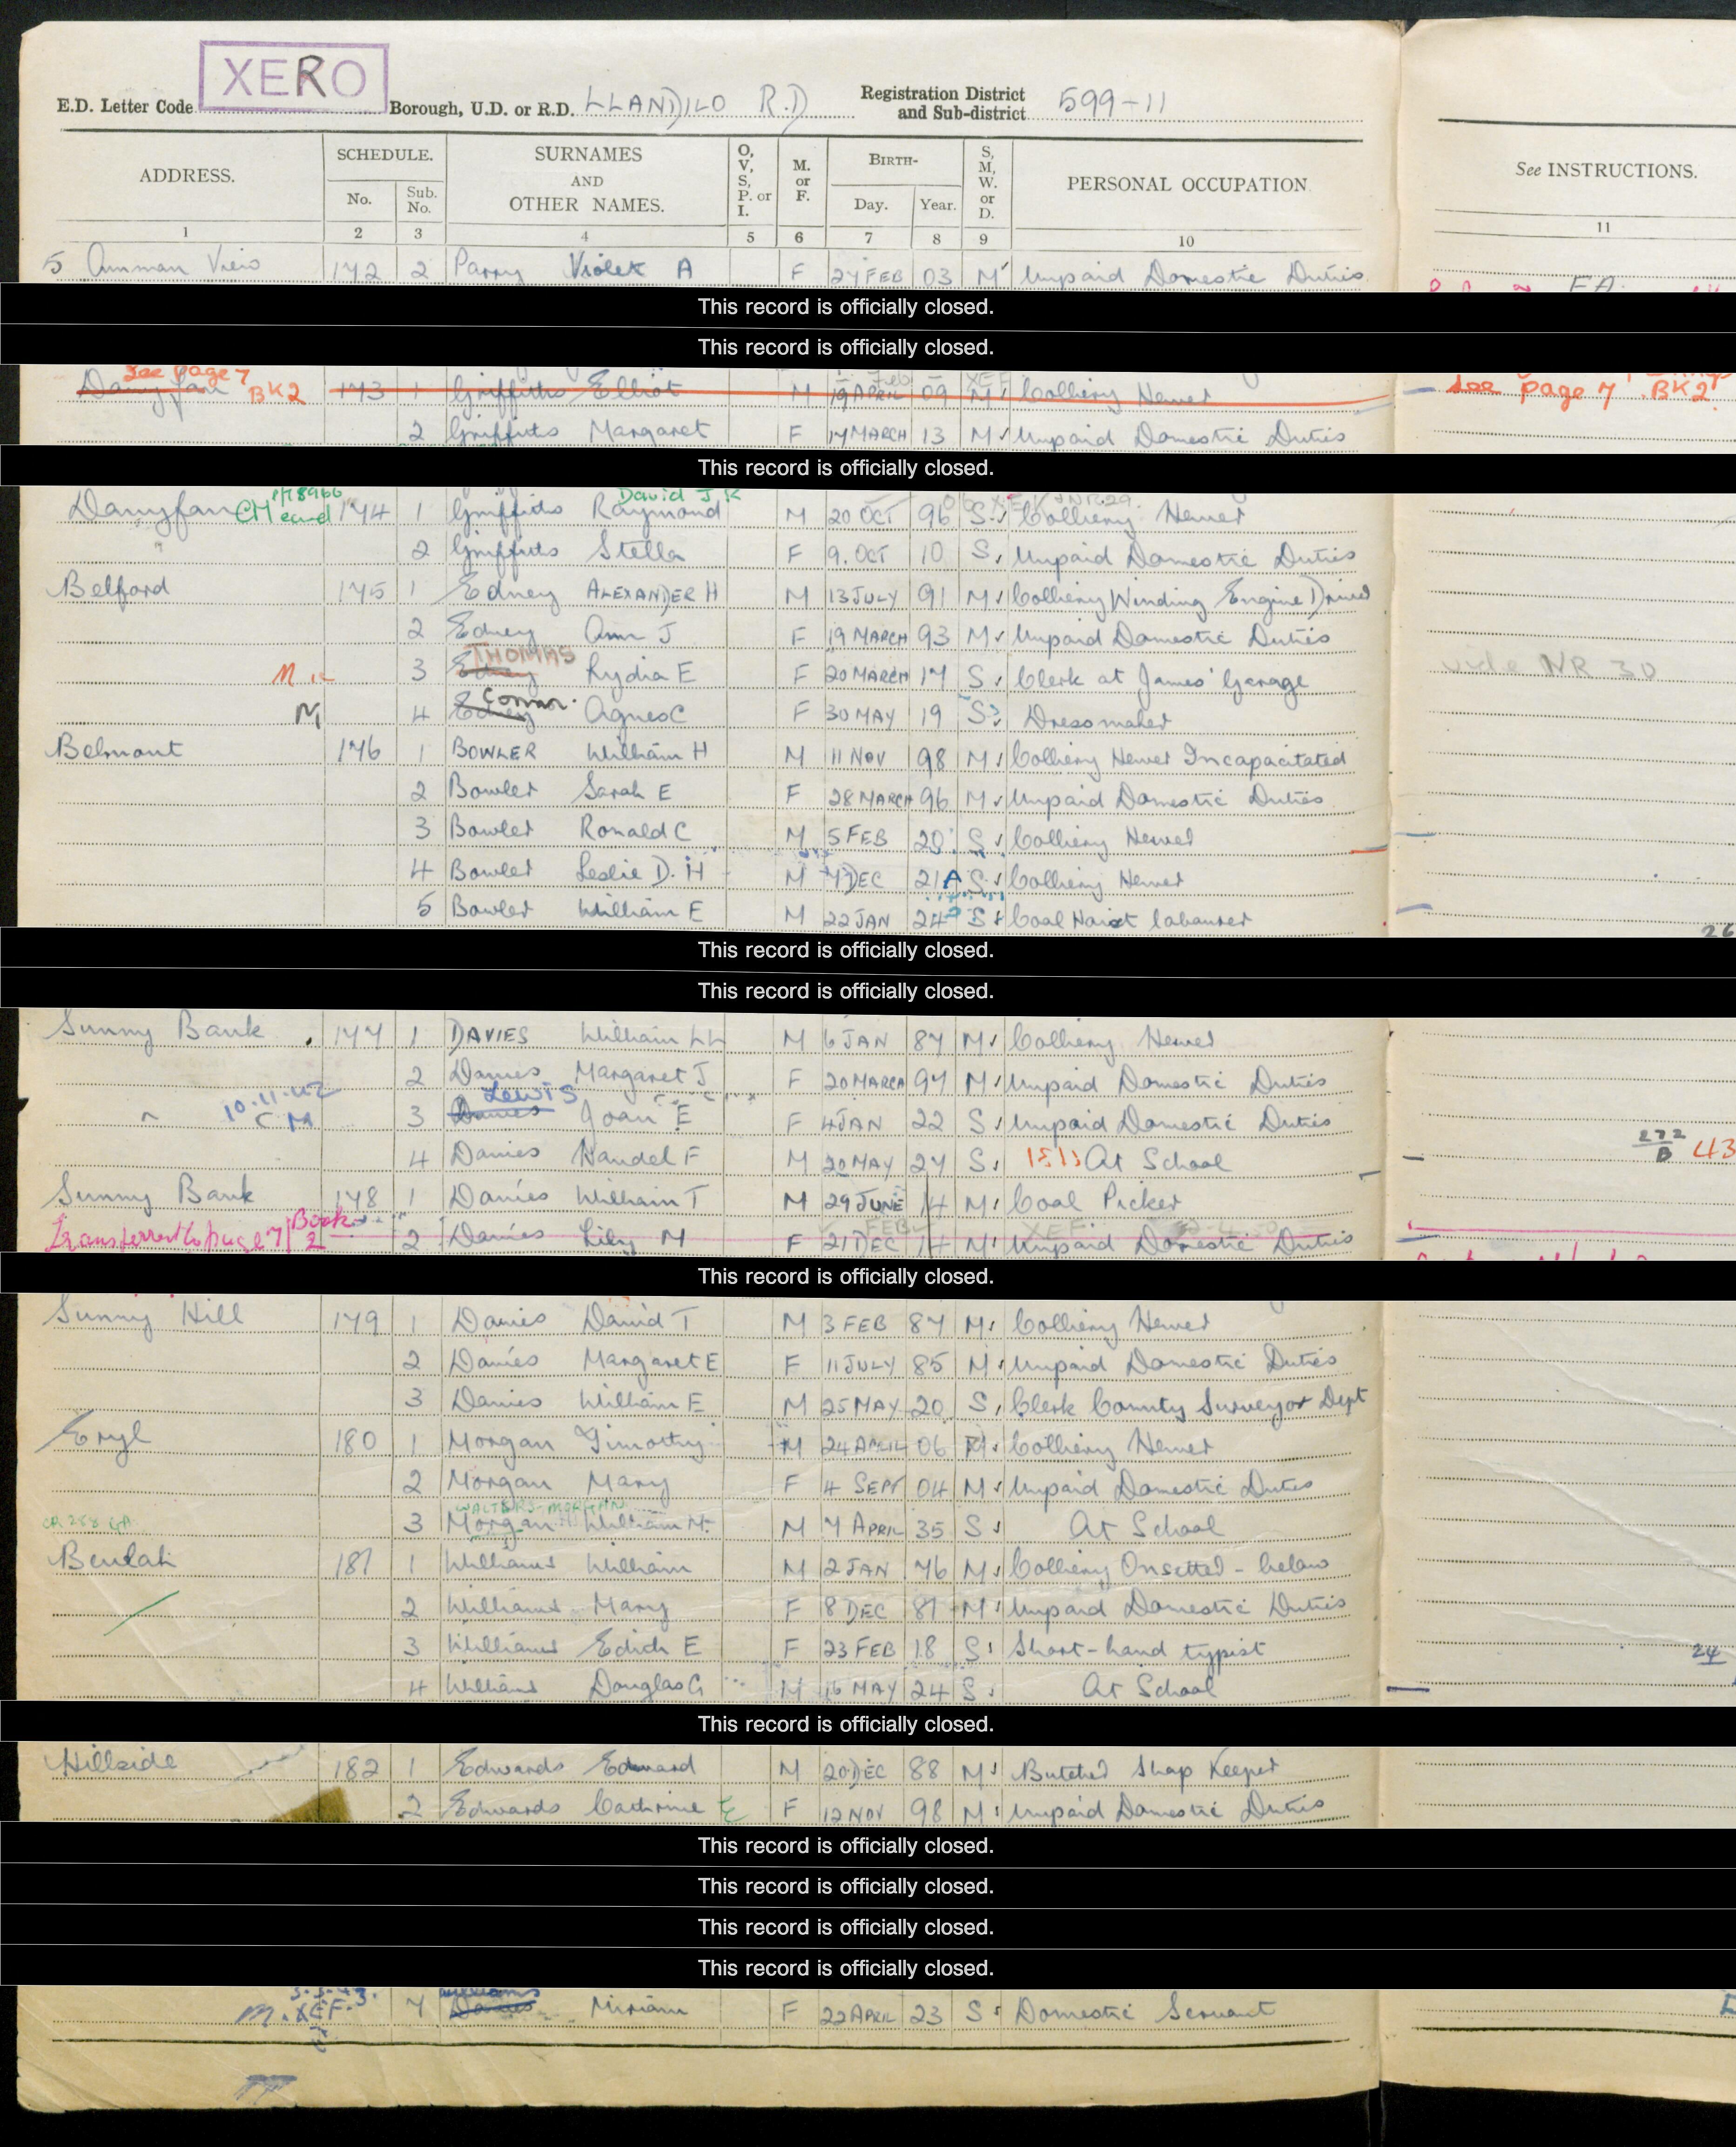 XERO
E.D. Letter Code Borough, U.D. or R.D. LLANDILO R.D Registration District and Sub-district 599-11
ADDRESS. SCHEDULE. SURNAMES AND OTHER NAMES. O, V, S, P. or I. M. or F. BIRTH- S, M, W. or D. PERSONAL OCCUPATION. See INSTRUCTIONS.
No. Sub. No. Day. Year.
1 2 3 4 5 6 7 8 9 10 11
5 Amman View 172 2 Parry Violet A F 27 FEB 03 M Unpaid Domestic Duties
This record is officially closed.
This record is officially closed.
See page 7 BK2
Danyfan 173 1 Griffiths Elliot M 19 APRIL 09 M Colliery Hewer see page 7 BK2
2 Griffiths Margaret F 17 MARCH 13 M Unpaid Domestic Duties
This record is officially closed.
David J K
Danyfan CM card 174 1 Griffiths Raymond M 20 OCT 96 S Colliery Hewer
" 2 Griffiths Stella F 9. OCT 10 S Unpaid Domestic Duties
Belford 175 1 Edney ALEXANDER H M 13 JULY 91 M Colliery Winding Engine Driver
2 Edney Ann J F 19 MARCH 93 M Unpaid Domestic Duties
THOMAS
3 Edney Lydia E F 20 MARCH 17 S Clerk at James' Garage vide NR 30
M 4 Edney Agnes C F 30 MAY 19 S Dressmaker
Belmont 176 1 BOWLER William H M 11 NOV 98 M Colliery Hewer Incapacitated
2 Bowler Sarah E F 28 MARCH 96 M Unpaid Domestic Duties
3 Bowler Ronald C M 5 FEB 20 S Colliery Hewer
4 Bowler Leslie D. H M 7 DEC 21 S Colliery Hewer
5 Bowler William E M 22 JAN 24 S Coal Hoist labourer 26
This record is officially closed.
This record is officially closed.
Sunny Bank 177 1 DAVIES William LL M 6 JAN 87 M Colliery Hewer
2 Davies Margaret J F 20 MARCH 97 M Unpaid Domestic Duties
Lewis
10.11.42 CM 3 Davies Joan E F 4 JAN 22 S Unpaid Domestic Duties
4 Davies Handel F M 20 MAY 27 S At School 272 B 43
Sunny Bank 178 1 Davies William T M 29 JUNE 14 M Coal Picker
Transferred to page 7 Book 2 2 Davies Lily M F 21 DEC 14 M Unpaid Domestic Duties
This record is officially closed.
Sunny Hill 179 1 Davies David T M 3 FEB 87 M Colliery Hewer
2 Davies Margaret E F 11 JULY 85 M Unpaid Domestic Duties
3 Davies William E M 25 MAY 20 S Clerk County Surveyor Dept
Eryl 180 1 Morgan Timothy M 24 APRIL 06 M Colliery Hewer
2 Morgan Mary F 4 SEPT 04 M Unpaid Domestic Duties
WALTERS-MORGAN
3 Morgan William M. M 7 APRIL 35 S At School
Beulah 181 1 Williams William M 2 JAN 76 M Colliery Onsetter - below
2 Williams Mary F 8 DEC 81 M Unpaid Domestic Duties
3 Williams Edith E F 23 FEB 18 S Short-hand typist 24
4 Williams Douglas G M 16 MAY 24 S At School
This record is officially closed.
Hillside 182 1 Edwards Edward M 20 DEC 88 M Butcher Shop Keeper
2 Edwards Cathrine F 12 NOV 98 M Unpaid Domestic Duties
This record is officially closed.
This record is officially closed.
This record is officially closed.
This record is officially closed.
Williams
M. XEF. 7 Davies Miriam F 22 APRIL 23 S Domestic Servant